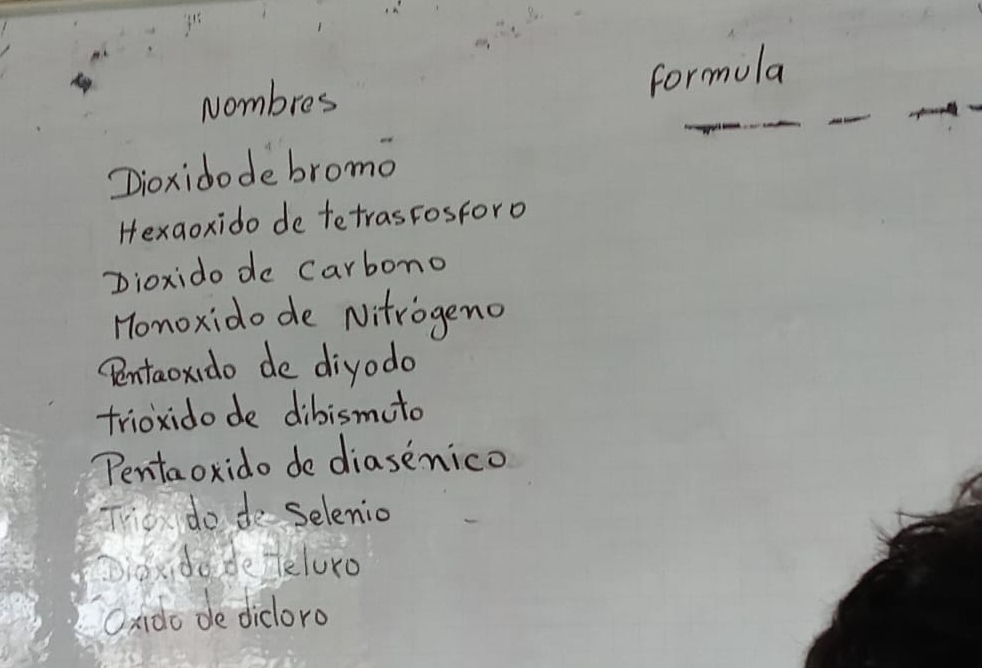 Nombres
formula
Dioxido de bromo
Hexaoxido de tetrasfosforo
Dioxido de Carbono
Monoxido de Nitrógeno
Pentaoxido de diyodo
trióxido de dibismuto
Pentaoxido de diasénico
Trioxido de Selenio
Dioxido de teluro
Oxido de dicloro